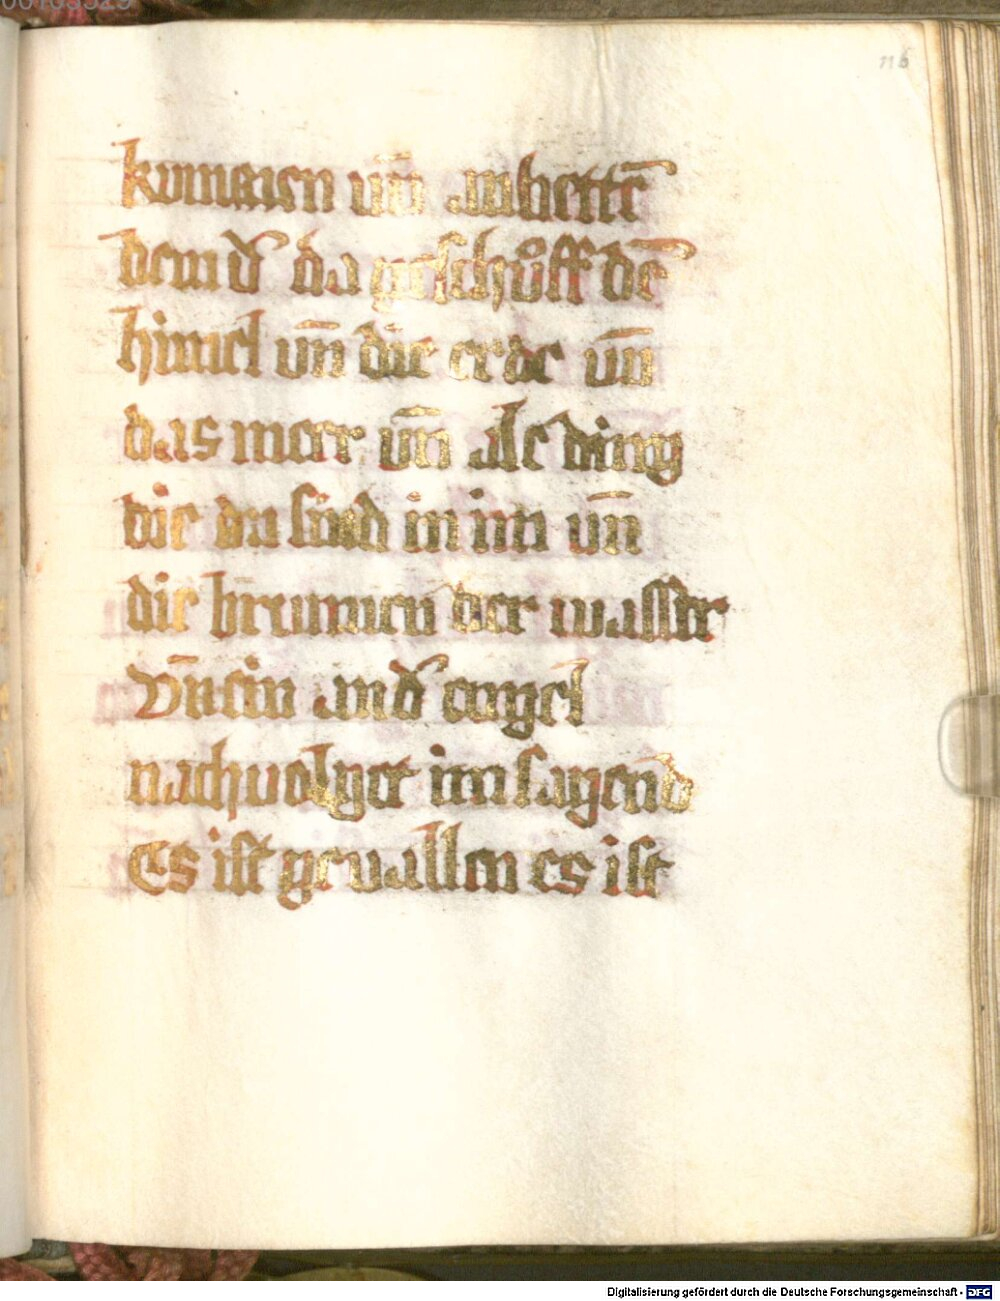 116
kumen vn̄ anbettē
dem d᷑ da geschůff dē
himel vn̄ die erde vn̄
das merr vn̄ alle ding
die da sind in im vn̄
die brunnen der wasser
Vn̄ ein and᷑ engel
nachuolget im sagend
Es ist geuallen es ist
Digitalisierung gefördert durch die Deutsche Forschungsgemeinschaft - DFG